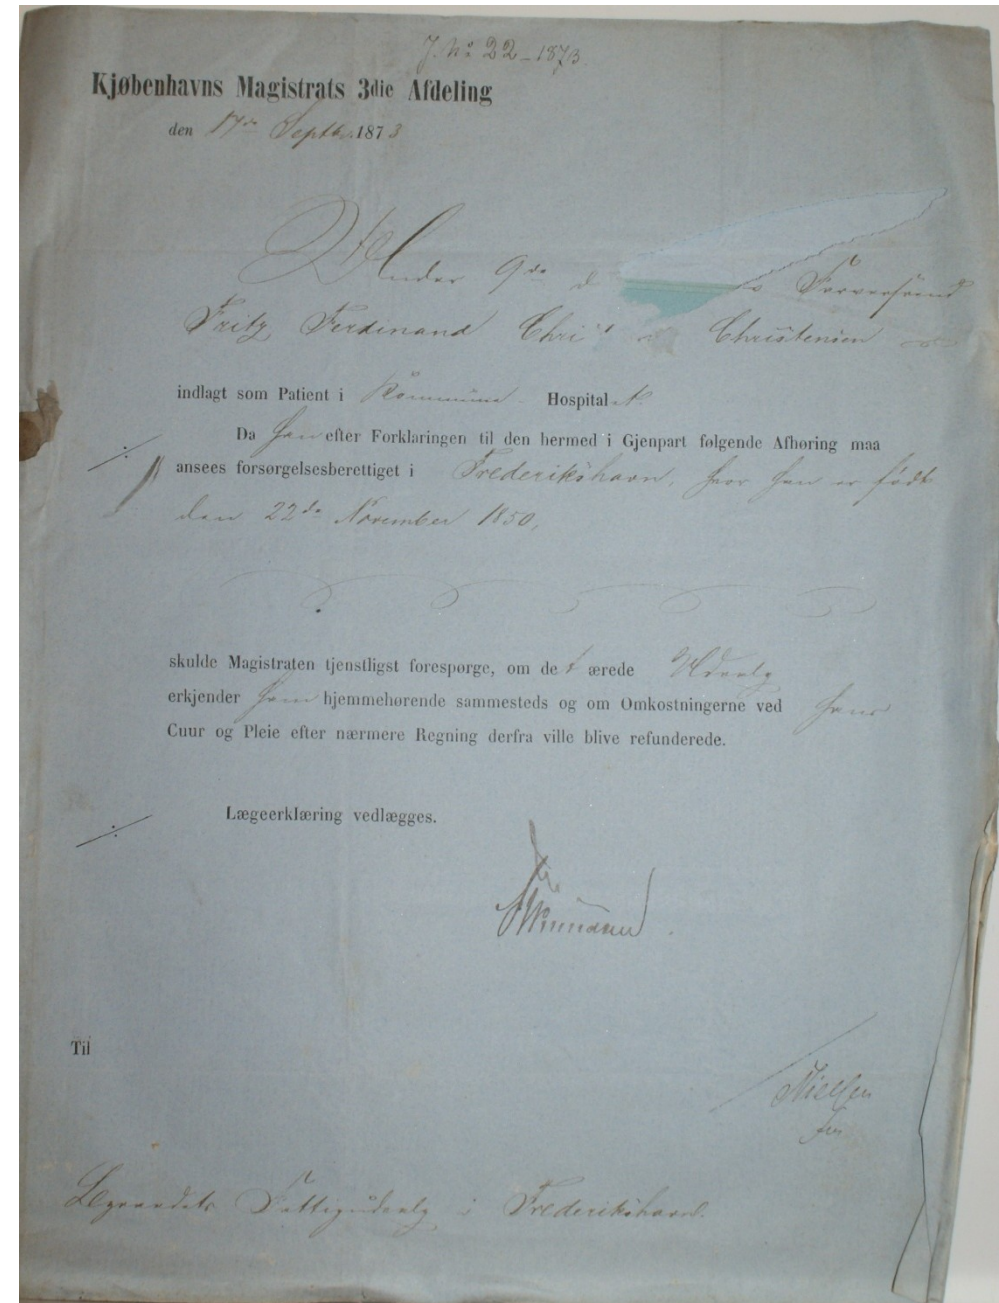 J. No 22 - 1873.
Kjøbenhavns Magistrats 3die Afdeling
den 17de Septbr. 1873
Under 9de d
Fritz Ferdinand Christensen
indlagt som Patient i Kommune Hospitalet
Da han efter Forklaringen til den hermed i Gjenpart følgende Afhøring maa
ansees forsørgelsesberettiget i Frederikshavn, hvor han er født
den 22de November 1850,
skulde Magistraten tjenstligst forespørge, om det ærede Udvalg
erkjender ham hjemmehørende sammesteds og om Omkostningerne ved hans
Cuur og Pleie efter nærmere Regning derfra ville blive refunderede.
Lægeerklæring vedlægges.
Til
Nielsen
Byraadets Fattigudvalg i Frederikshavn.